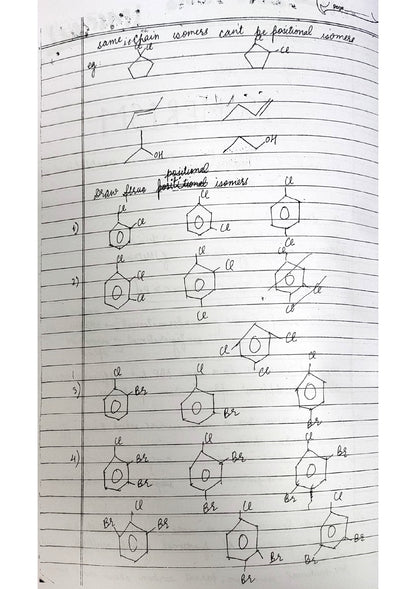 same, chain isomers can't be positional isomers
eg
Cl Cl
OH OH
positional
Draw isomers
Cl Cl Cl
1) Cl Cl Cl
Cl Cl Cl
2) Cl Cl Cl
Cl Cl Cl
Cl Cl Cl
Cl Cl Cl
3) Br Br Br
Cl Cl Cl
4) Br Br Br
Br Br Br
Cl Cl Cl
Br Br Br Br
Br Br